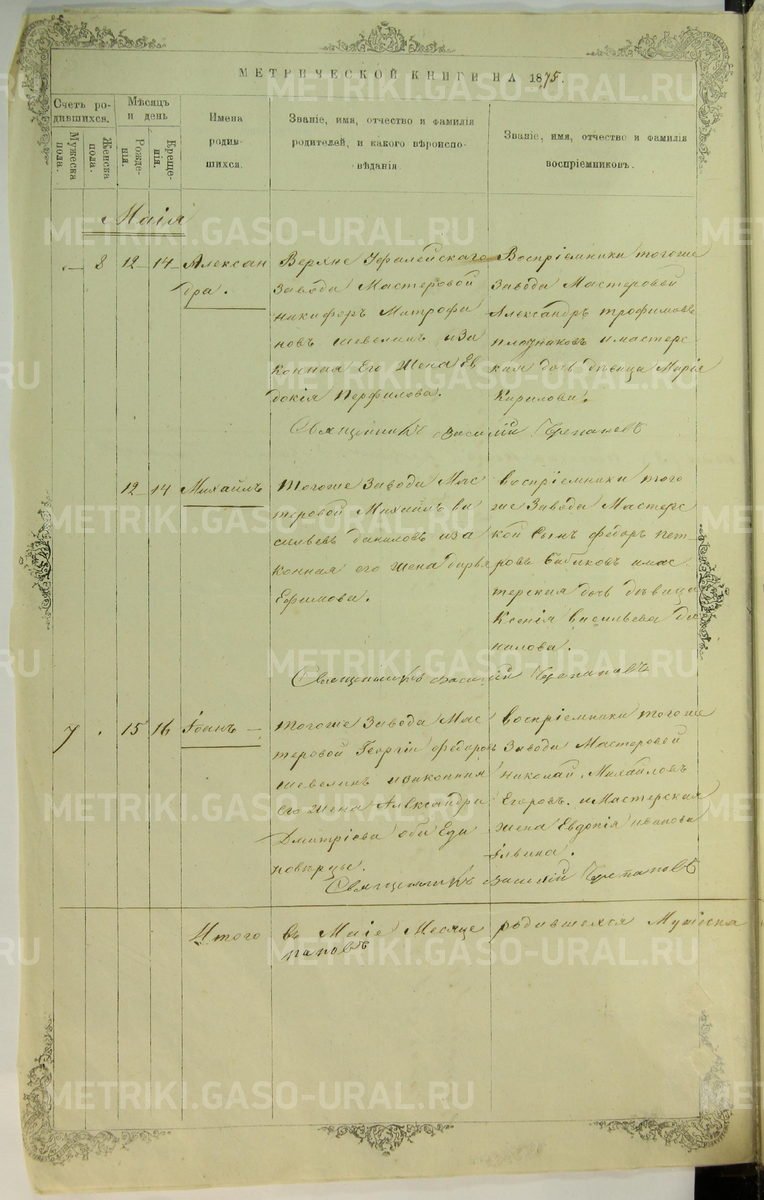 МЕТРИЧЕСКОЙ КНИГИ НА 1875.
Счетъ ро-
дившихся.
Мужеска пола.
Женска пола.
Мѣсяцъ
и день
Рожде-
нія.
Креще-
нія.
Имена
родив-
шихся.
Званіе, имя, отчество и фамилія
родителей, и какого вѣроиспо-
вѣданія.
Званіе, имя, отчество и фамилія
воспріемниковъ.
Маія
— 8 12 14 Алексан
дра.
Верхне Уфалейскаго
Завода Мастеровой
Никифоръ Митрофа
новъ Шевелинъ иза
конная Его Жена Ев
докія Перфилова.
Воспріемники тогоже
Завода Мастеровой
Александръ трофимовъ
имастерс
кая дочь дѣвица Марія
Кирилова.
Священникъ Василій
12 14 Михаилъ
Тогоже Завода Мас
теровой Михаилъ ва
сильевъ даниловъ иза
конная его жена дарья
Ефимова.
воспріемники того
же Завода Мастерс
кой Сынъ федоръ пет
ровъ Бабиковъ имас
терская дочь дѣвица
Ксенія васильева да
нилова.
Священникъ Василій
7 . 15 16 Іоанъ —
Тогоже Завода Мас
теровой Георгій федоровъ
шевелинъ изаконная
его жена Александра
Дмитріева оба Еди
новѣрцы.
воспріемники тогоже
Завода Мастеровой
Николай Михайловъ
Егоровъ. иМастерская
жена Евдокія иванова
Священникъ Василій
Итого въ Маіе Месяце родившихся Мужеска
METRIKI.GASO-URAL.RU